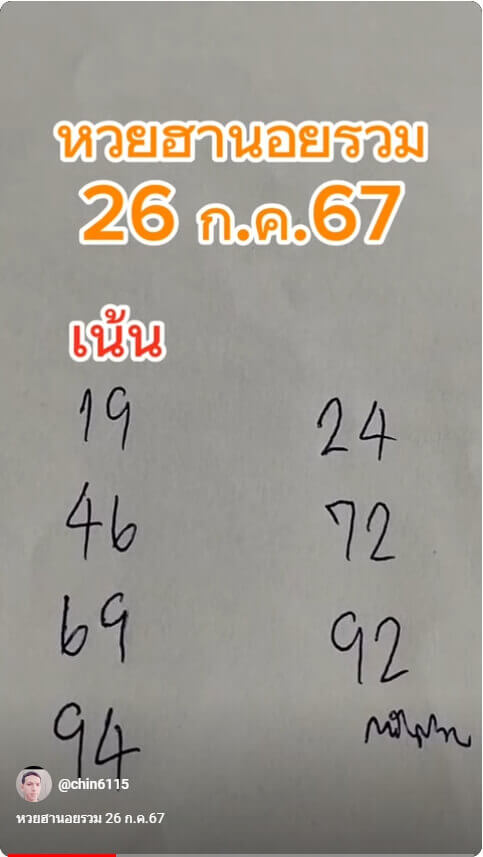 หวยฮานอยรวม
26 ก.ค.67
เน้น
19 24
46 72
69 92
94
@chin6115
หวยฮานอยรวม 26 ก.ค.67